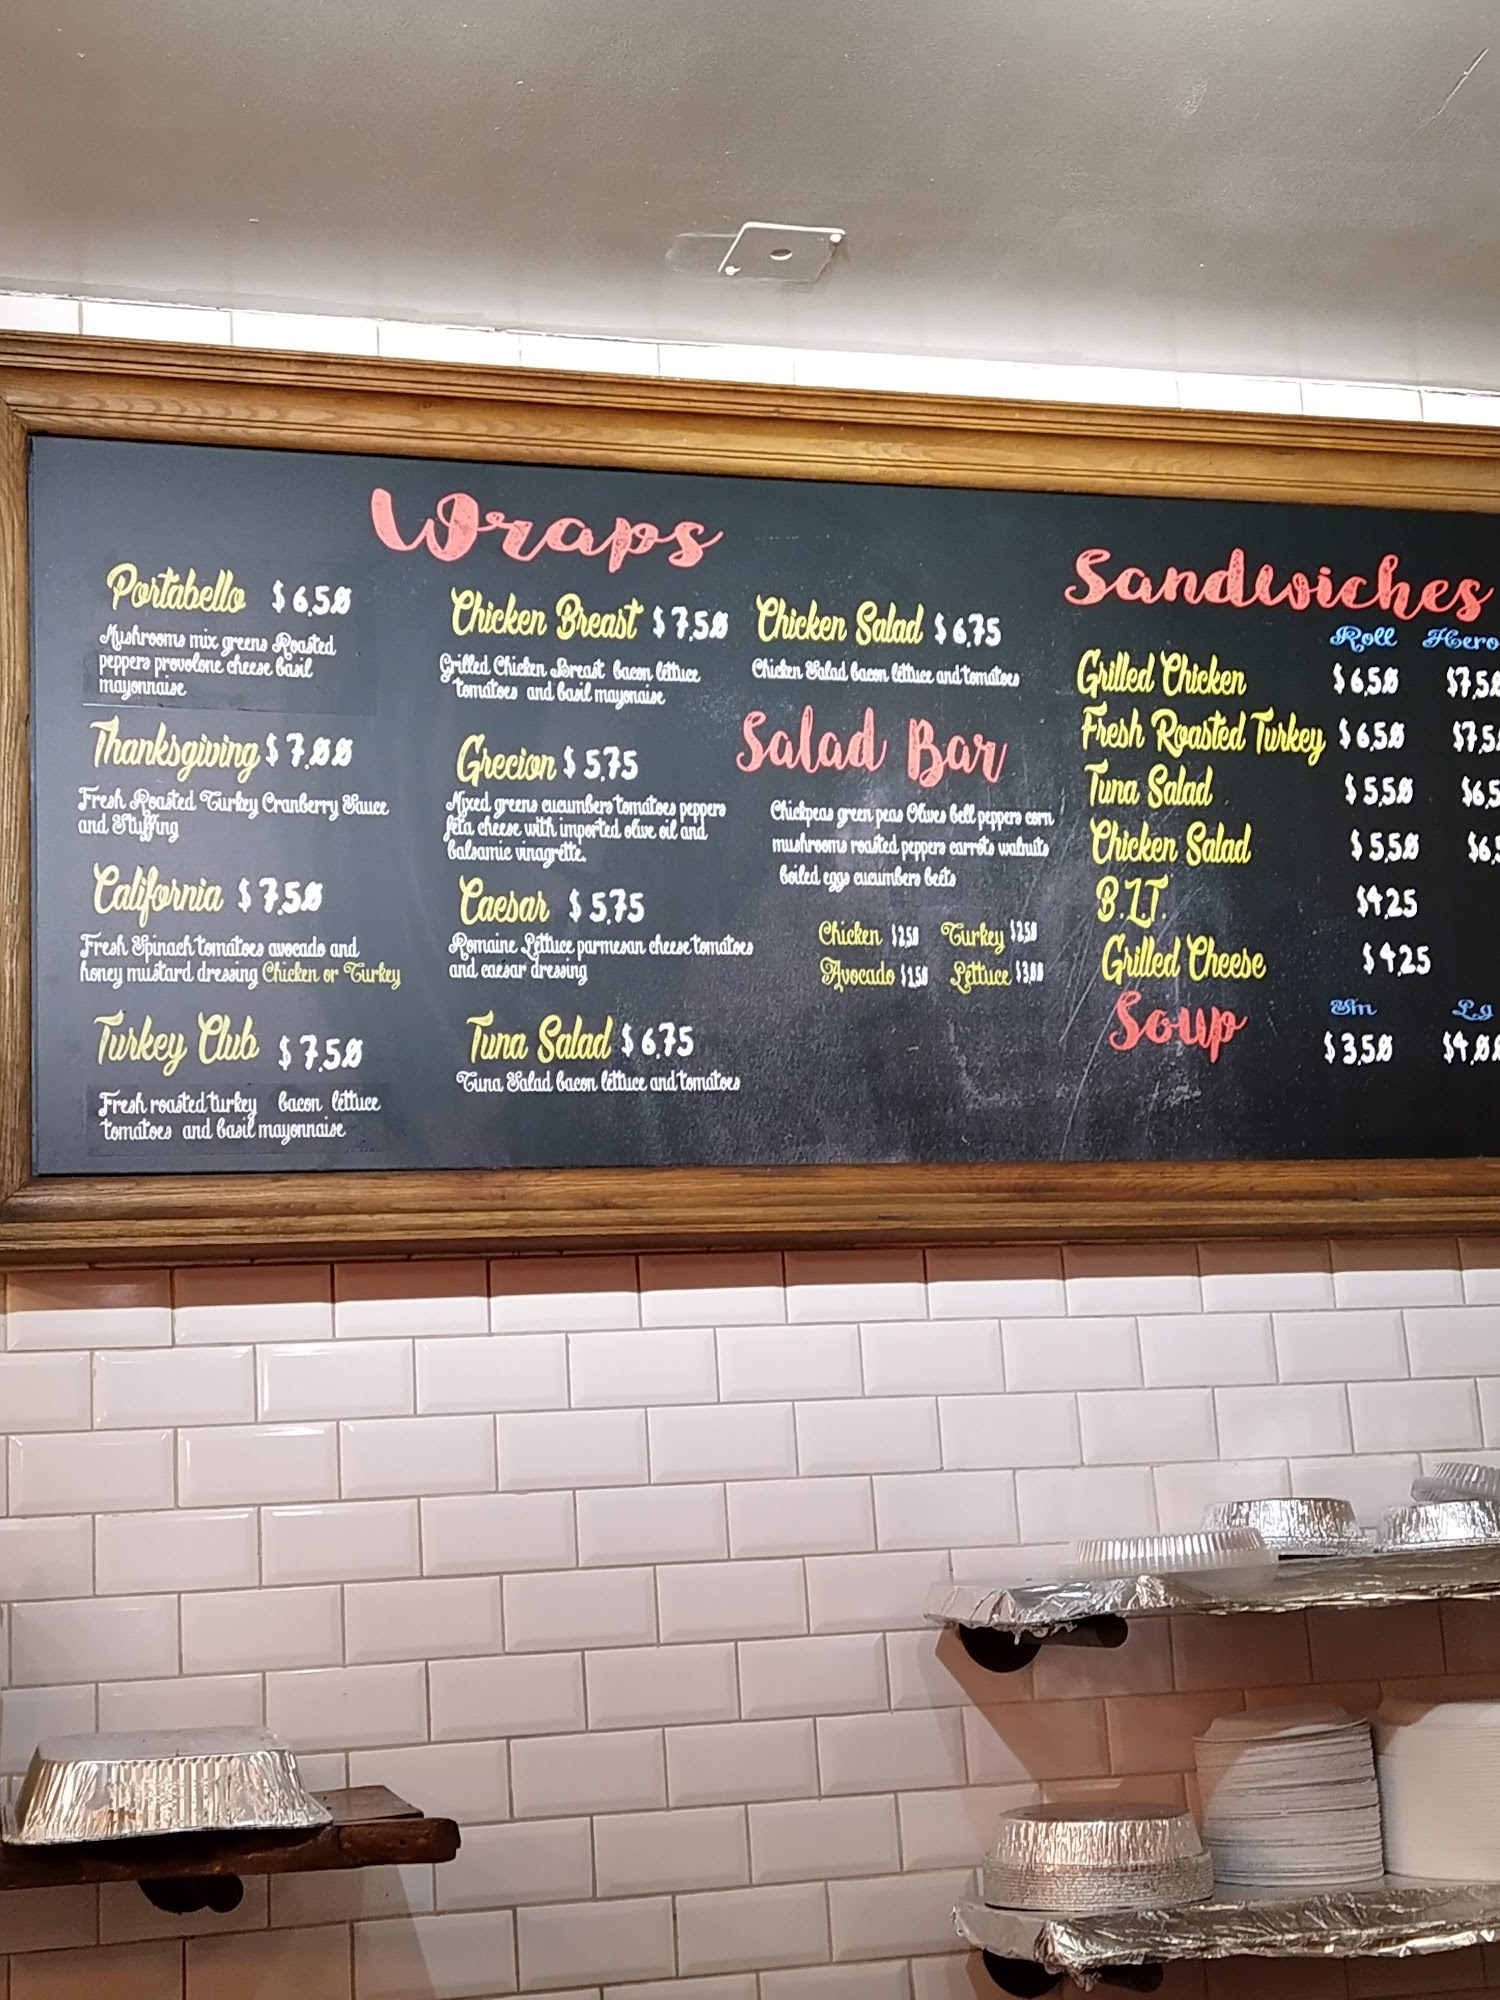 Wraps
Portabello $6.50
Mushrooms mix greens Roasted
peppers provolone cheese basil
mayonnaise
Thanksgiving $7.00
Fresh Roasted Turkey Cranberry Sauce
and Stuffing
California $7.50
Fresh Spinach tomatoes avocado and
honey mustard dressing Chicken or Turkey
Turkey Club $7.50
Fresh roasted turkey bacon lettuce
tomatoes and basil mayonnaise
Chicken Breast $7.50
Grilled Chicken Breast bacon lettuce
tomatoes and basil mayonaise
Grecion $5.75
Mixed greens cucumbers tomatoes peppers
feta cheese with imported olive oil and
balsamic vinagrette.
Caesar $5.75
Romaine Lettuce parmesan cheese tomatoes
and caesar dressing
Tuna Salad $6.75
Tuna Salad bacon lettuce and tomatoes
Chicken Salad $6.75
Chicken Salad bacon lettuce and tomatoes
Salad Bar
Chickpeas green peas Olives bell peppers corn
mushrooms roasted peppers carrots walnuts
boiled eggs cucumbers beets
Chicken $2.50 Turkey $2.50
Avocado $1.50 Lettuce $3.00
Sandwiches
Roll Hero
Grilled Chicken $6.50 $7.5
Fresh Roasted Turkey $6.50 $7.5
Tuna Salad $5.50 $6.5
Chicken Salad $5.50 $6.5
B.L.T. $4.25
Grilled Cheese $4.25
Sm Lg
Soup $3.50 $4.00